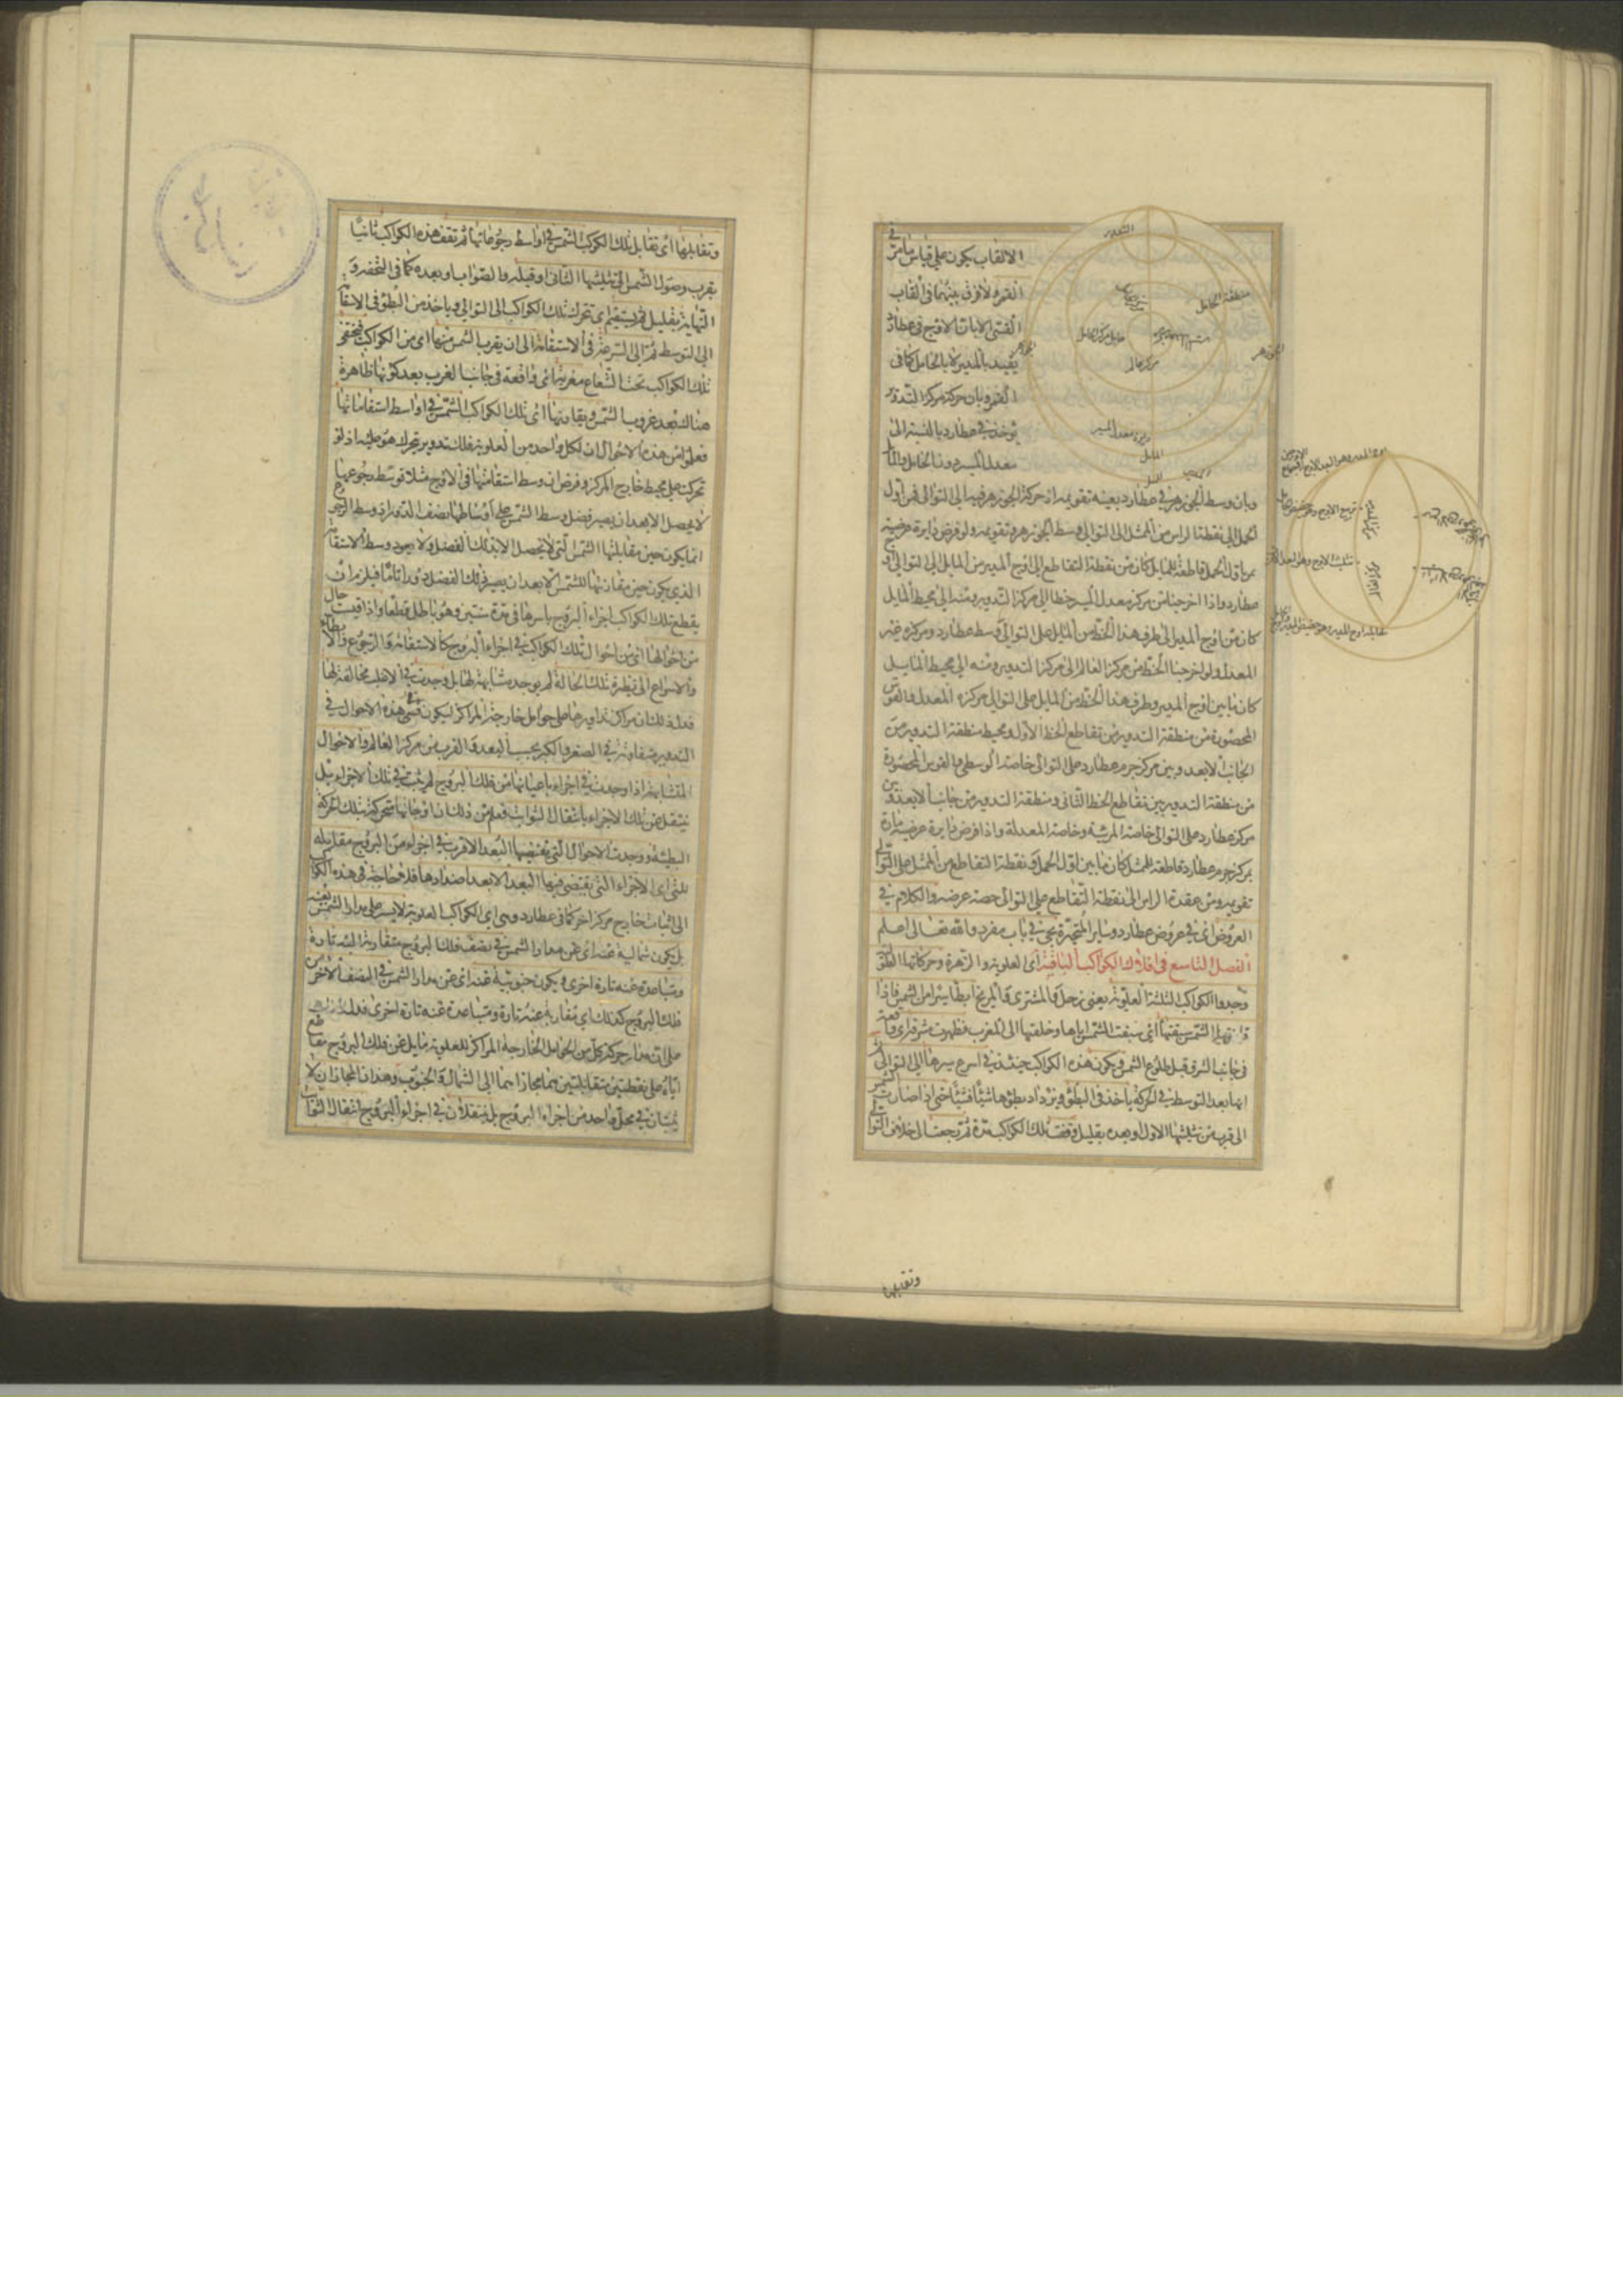 الالقاب يكون على قياس ما مر في
القمر ولا فرق بينهما في القاب
القسي الا بان الاوج في عطارد
يقيد بالمدير لا بالحامل كما في
القمر وبان حركة مركز التدوير
يؤخذ في عطارد بالنسبة الى
معدل المسير دون الحامل والمايل
وبان وسط الجوزهر في عطارد بعينه تقويمه اذ حركة الجوزهر فيه الى التوالى فمن اول
الحمل الى نقطة الراس من الممثل الى التوالى وسط الجوزهر وتقويمه ولو فرض دايرة عرضية
تمر باول الحمل قاطعة للمايل كان من نقطة التقاطع الى اوج المدير من المايل الى التوالى اوج
عطارد واذا اخرجنا من مركز معدل المسير خطا الى مركز التدوير ومنه الى محيط المايل
كان من اوج المدير الى طرف هذا الخط من المايل على التوالى وسط عطارد ومركزه غير
المعدل ولو اخرجنا الخط من مركز العالم الى مركز التدوير ومنه الى محيط المايل
كان ما بين اوج المدير وطرف هذا الخط من المايل على التوالى مركزه المعدل فالقوس
المحصورة من منطقة التدوير من تقاطع الخط الاول ومحيط منطقة التدوير من
الجانب الابعد وبين مركز جرم عطارد على التوالى خاصته الوسطى والقوس المحصورة
من منطقة التدوير بين تقاطع الخط الثانى ومنطقة التدوير من جانب الابعد وبين
مركز عطارد على التوالى خاصته المرئية وخاصته المعدلة واذا فرض دايرة عرضية مارة
بمركز جرم عطارد قاطعة للممثل كان ما بين اول الحمل ونقطة التقاطع من الممثل على التوالى
تقويمه ومن عقدة الراس الى نقطة التقاطع على التوالى حصة عرضه والكلام في
العروض اى في عروض عطارد وساير المتحيرة يجئ في باب مفرد والله تعالى اعلم
الفصل التاسع في افلاك الكواكب الباقية اى العلوية والزهرة وحركاتها
وجدوا الكواكب الثلثة العلوية يعنى زحل والمشترى والمريخ ابطا سيرا من الشمس فاذا
قارنها الشمس سبقتها اى سبقت الشمس اياها وخلفتها الى المغرب فظهرت مشرقة اى واقعة
في جانب الشرق قبل طلوع الشمس ويكون هذه الكواكب حينئذ في اسرع سيرها الى التوالى
انها بعد التوسط في الحركة ياخذ في البطؤ ويزداد بطؤها شيئا فشيئا حتى اذا صارت الشمس
الى قرب من تثليثها الاول او بعده بقليل وقفت تلك الكواكب مرة ثم رجعت الى خلاف التوالى
منطقة الحامل
مركز العالم
المايل
وتقابلها
وتقابلها اى تقابل تلك الكواكب الشمس في اواسط رجوعاتها ثم تقف هذه الكواكب ثانيا
بقرب وصول الشمس الى تثليثها الثانى او قبله والصواب او بعده كما في التحفة و
النهاية بقليل ثم يستقيم اى تتحرك تلك الكواكب الى التوالى وياخذ من البطؤ في الاستقامة
الى التوسط ثم الى السرعة في الاستقامة الى ان يقرب الشمس منها اى من الكواكب فتختفى
تلك الكواكب تحت الشعاع مغربة اى واقعة في جانب الغرب بعد كونها ظاهرة
هناك بعد غروب الشمس ويقارنها اى تلك الكواكب الشمس في اواسط استقاماتها
فعلم من هذه الاحوال ان لكل واحد من العلوية فلك تدوير يتحرك هو عليه اذ لو
تحركت على محيط خارج المركز وفرض ان وسط استقامتها في الاوج مثلا فوسط رجوعها
لا يحصل الا بعد ان يصير فضل وسط الشمس على اوساطها نصف الدور اذ وسط الرجوع
انما يكون حين مقابلتها الشمس التى لا يحصل الا بذلك الفضل ولا يعود وسط الاستقامة
الذى يكون حين مقارنتها للشمس الا بعد ان يصير ذلك الفضل دورا تاما فيلزم ان
يقطع تلك الكواكب اجزاء البروج باسرها في مدة سنتين وهو باطل قطعا واذا قيست حال
من احوالها اى من احوال تلك الكواكب في اجزاء البروج كالاستقامة والرجوع والابطاء
والاسراع الى نظيرة تلك الحالة لم يوجد مشابهة لها بل وجدت في الاغلب مخالفة لها
فدل ذلك ان مراكز تداويرها على حوامل خارجة المراكز ليكون قسى هذه الاحوال في
التدوير متفاوتة في الصغر والكبر بحسب البعد والقرب من مركز العالم والاحوال
المتشابهة اذا وجدت في اجزاء باعيانها من فلك البروج لم يثبت في تلك الاجزاء بل
ينتقل عن تلك الاجزاء بانتقال الثوابت فعلم من ذلك ان اوجاتها متحركة بتلك الحركة
البطيئة ووجدت الاحوال التى يقتضيها البعد الاقرب في اجزاء من البروج مقابلة
للتى اى الاجزاء التى يقتضى فيها البعد الابعد اضدادها فلا حاجة في هذه الكواكب
الى اثبات خارج مركز اخر كما في عطارد وهى اى الكواكب العلوية لا يسير على مدار الشمس بعينه
بل يكون شمالية عنه اى عن مدار الشمس في نصف فلك البروج متقاربة اليه تارة
ومتباعدة عنه تارة اخرى ويكون جنوبية عنه اى عن مدار الشمس في النصف الاخر من
فلك البروج كذلك اى متقاربة عنه تارة ومتباعدة عنه تارة اخرى فدل ذلك
على ان مدار حركة كل من الحوامل الخارجة المراكز للعلوية مايل عن فلك البروج مقاطع
اياه على نقطتين متقابلتين هما مجازاهما الى الشمال والجنوب وهذان المجازان لا
يثبتان في محل واحد من اجزاء البروج بل ينتقلان في اجزاء البروج انتقال الثوابت